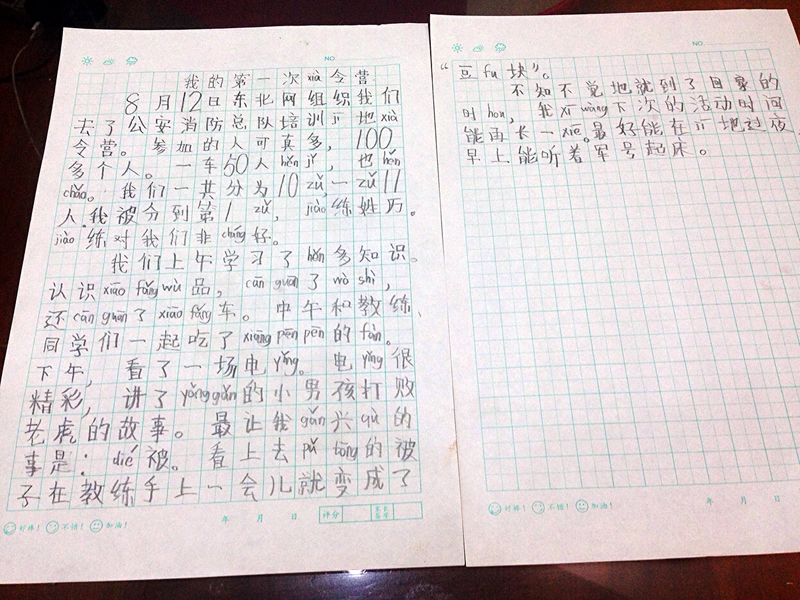 NO.
我的第一次xià令营
8月12日东北网组织我们
去了公安消防总队培训jī地xià
令营。参加的人可真多,100
多个人。一车50人hěn jǐ,也hěn
chǎo。我们一共分为10zǔ,一zǔ11
人.我被分到第1zǔ,jiào练姓历。
jiào练对我们非cháng好。
我们上午学习了hěn多知识。
认识xiāo fáng wù品,cān guān了wò shì,
还cān guān了xiāo fáng车。中午和教练、
同学们一起吃了xiāng pēn pēn的fàn。
下午,看了一场电yǐng。电yǐng很
精彩,讲了yǒng gǎn的小男孩打败
老虎的故事。最让我gǎn兴qù的
事是:dié被。看上去pǔ tōng的被
子在教练手上一会儿就变成了
好棒! 不错! 加油!
年 月 日 评分 家长签字
NO.
“豆fu块”。
不知不觉地就到了回家的
时hou,我xī wàng下次的活动时间
能再长一xiē。最好能在jī地过夜
早上能听着军号起床。
好棒! 不错! 加油!
年 月 日